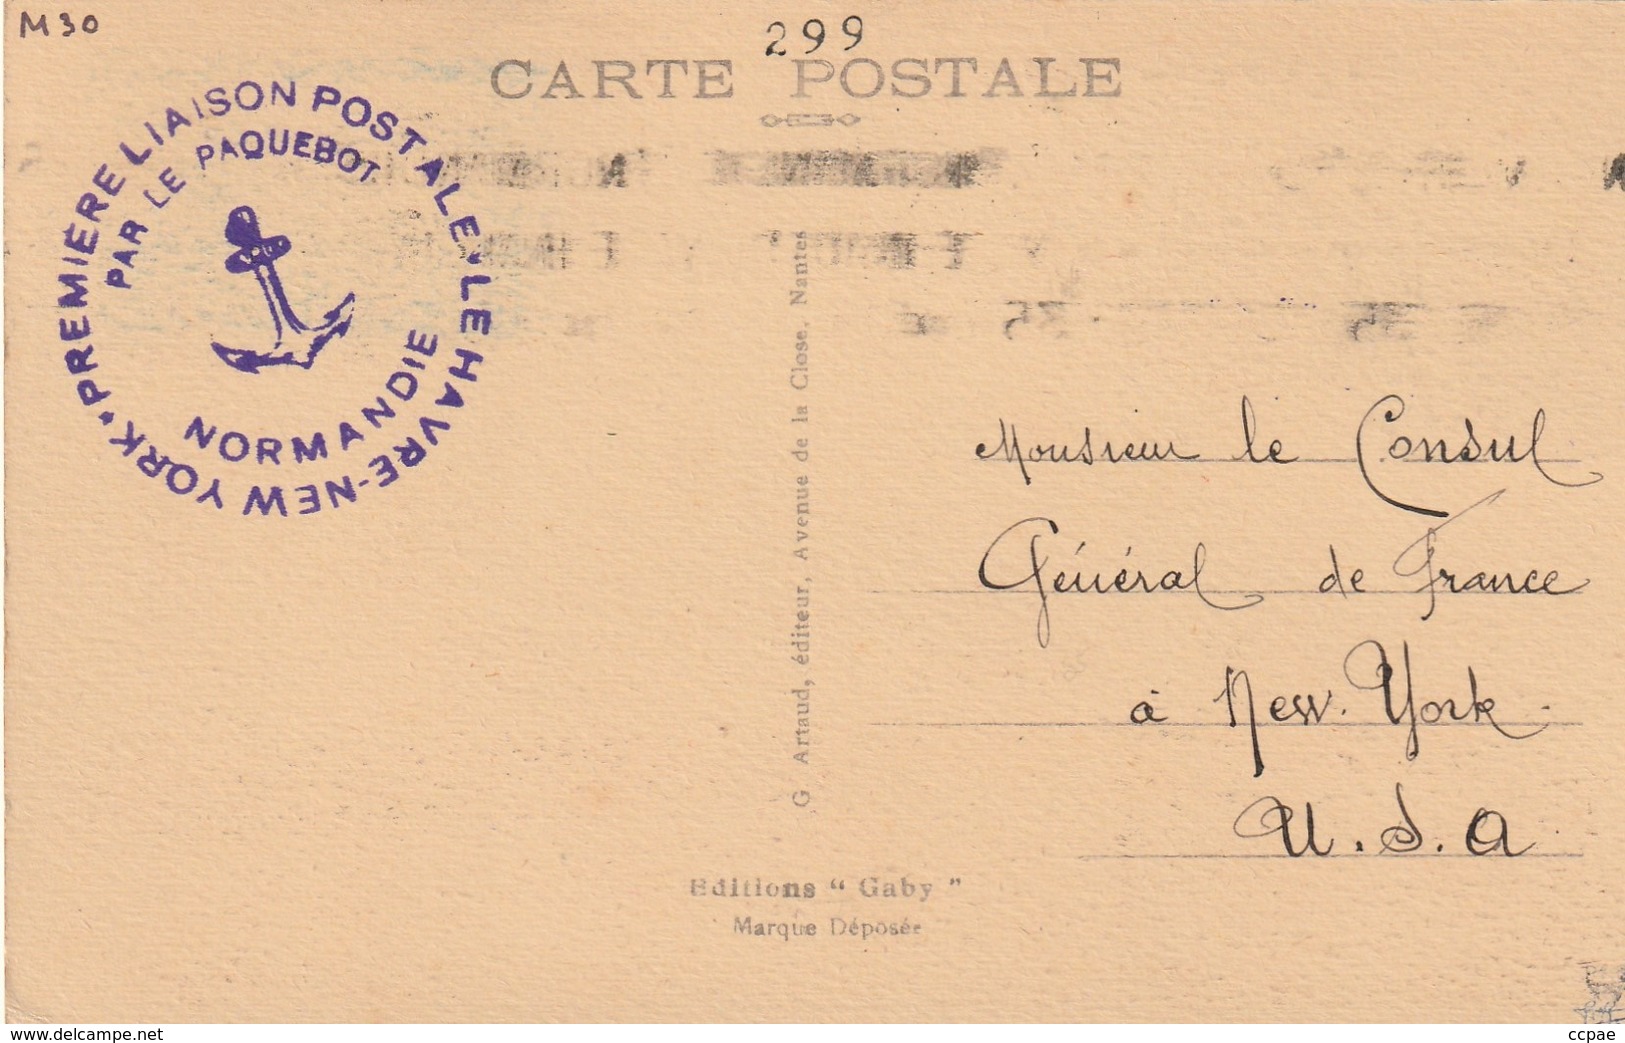 M30
299
CARTE POSTALE
"PREMIÈRE LIAISON POSTALE. LE HAVRE-NEW YORK"
PAR LE PAQUEBOT
NORMANDIE
G Artaud, éditeur, Avenue de la Close, Nantes
Monsieur le Consul
Général de France
à New. York.
U.S.A
Editions “ Gaby ”
Marque Déposée
www.delcampe.net
ccpae